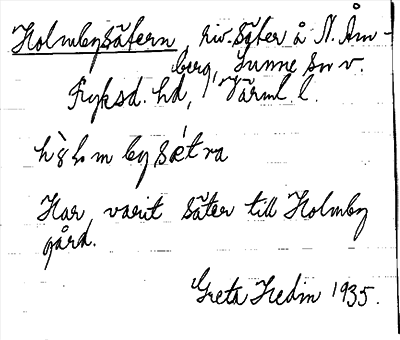 Holmbysätern riv. säter å N. Åm-
berg, Sunne sn v.
Fryksd. hd, Värml. l.
hòlmbysǽtra
Har varit säter till Holmby
gård.
Greta Hedin 1935.